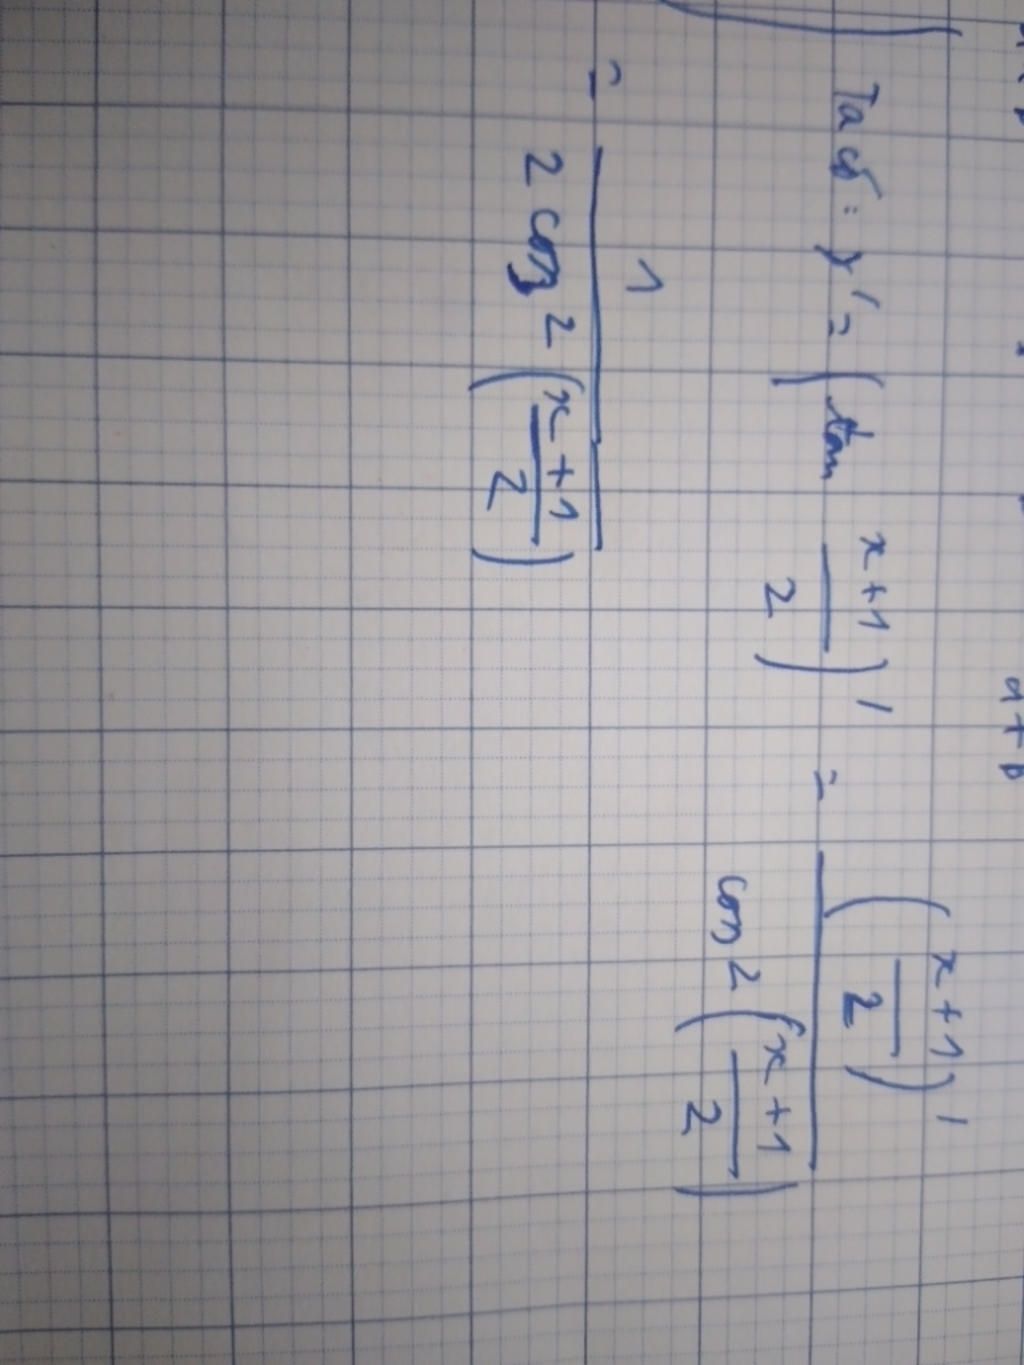 a + b
Ta có: y' = (tan x+1/2)' = (x+1/2)' / cos2 (x+1/2)
= 1 / 2 cos 2 (x+1/2)